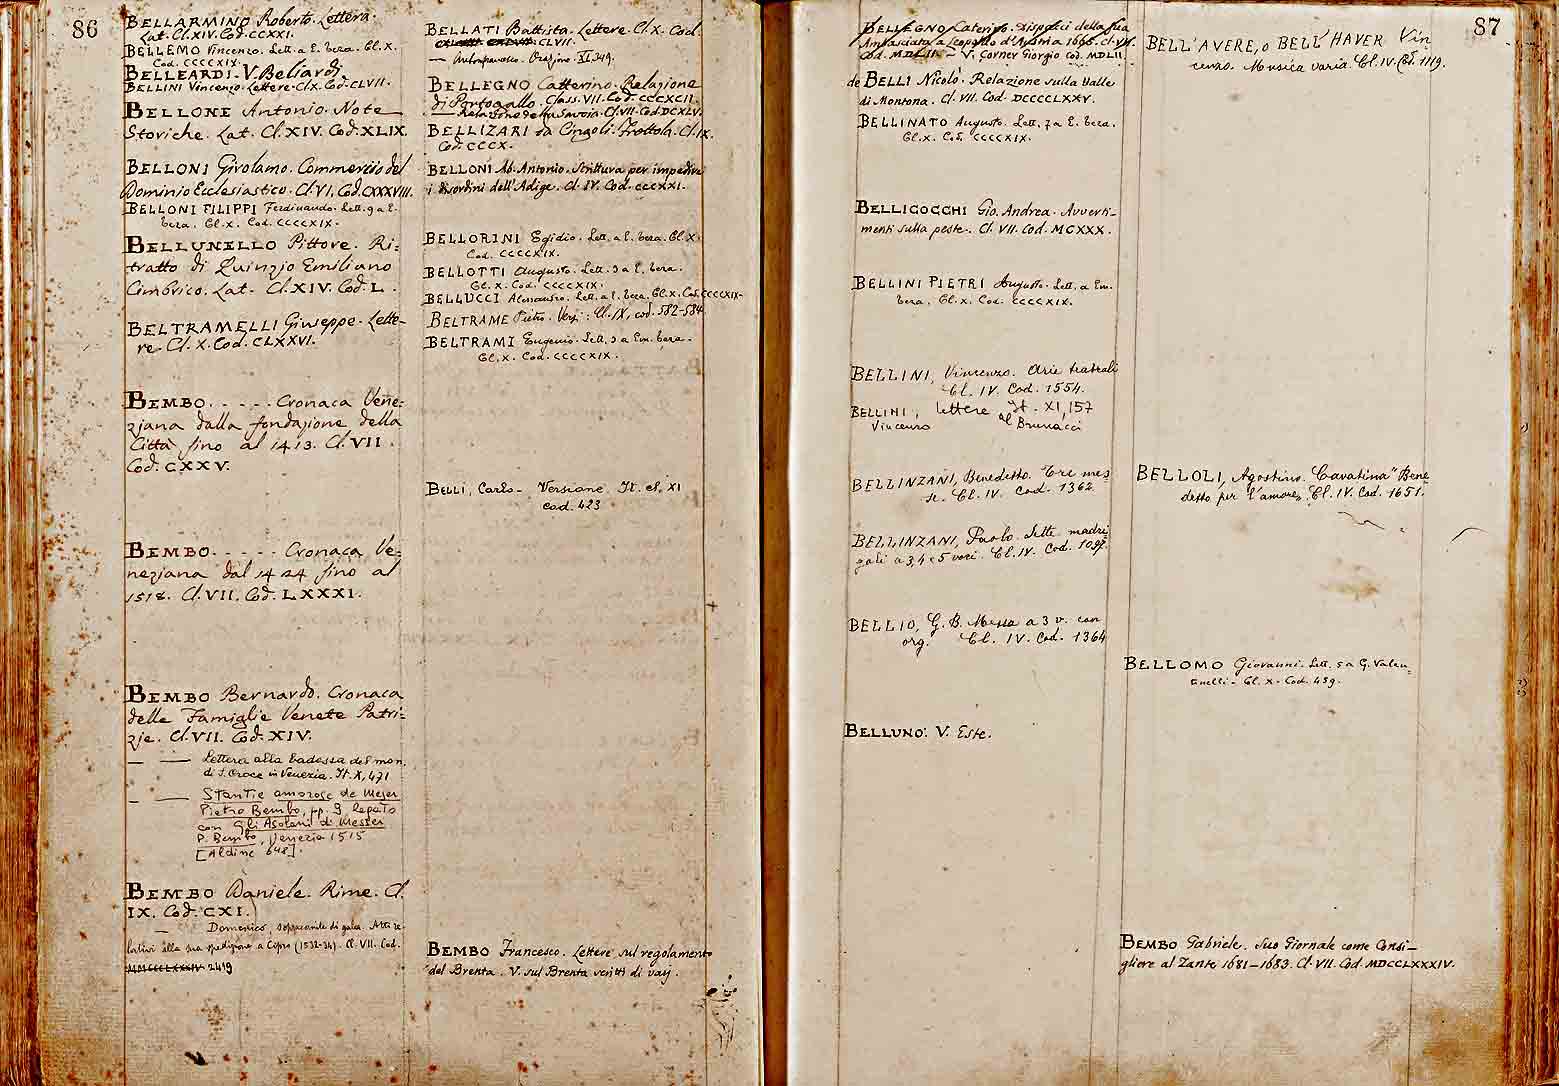 86
BELLARMINO Roberto. Lettera.
Lat. Cl. XIV. Cod. CCXXI.
BELLEMO Vincenzo. Lett. a E. Teza. Cl. X.
Cod. CCCCXIX.
BELLEARDI. V. Beliardi
BELLINI Vincenzo. Lettere. Cl. X. Cod. CLVII.
BELLONE Antonio. Note
Storiche. Lat. Cl. XIV. Cod. XLIX.
BELLONI Girolamo. Commercio del
Dominio Ecclesiastico. Cl. VI. Cod. CXXXVIII.
BELLONI FILIPPI Ferdinando. Lett. 9 a E.
Teza. Cl. X. Cod. CCCCXIX.
BELLUNELLO Pittore. Ri=
tratto di Quinzio Emiliano
Cimbrico. Lat. Cl. XIV. Cod. L.
BELTRAMELLI Giuseppe. Lette=
re. Cl. X. Cod. CLXXVI.
BEMBO. . . . . . Cronaca Vene=
ziana dalla fondazione della
Città fino al 1413. Cl. VII.
Cod. CXXV.
BEMBO. . . . . . Cronaca Ve=
neziana dal 1424 fino al
1518. Cl. VII. Cod. LXXXI.
BEMBO Bernardo. Cronaca
delle Famiglie Venete Patri=
zie. Cl. VII. Cod. XIV.
— — Lettera alla badessa del mon.
di S. Croce in Venezia. It. X, 471
— — Stantie amorose de Meser
Pietro Bembo, pp. 9, legato
con Gli Asolani di Messer
P. Bembo, Venezia 1515
[Aldine 648].
BEMBO Daniele. Rime. Cl.
IX. Cod. CXI.
— Domenico, sopracomite di galea. Atti re=
lativi alla sua spedizione a Cipro (1532-34). Cl. VII. Cod.
MMCCCLXXXIV 2419
BELLATI Battista. Lettere. Cl. X. Cod.
CLVII.
— Autografo. XI, 349.
BELLEGNO Catterino. Relazione
di Portogallo. Class. VII. Cod. CCCXCII.
— Relazione della Savoia. Cl. VII. Cod. DCXLV.
BELLIZARI da Cingoli. Frottola. Cl. IX.
Cod. CCCX.
BELLONI Ab. Antonio. Scrittura per impedire
i disordini dell'Adige. Cl. IV. Cod. CCCXXI.
BELLORINI Egidio. Lett. a E. Teza. Cl. X.
Cod. CCCCXIX.
BELLOTTI Augusto. Lett. 3 a E. Teza.
Cl. X. Cod. CCCCXIX.
BELLUCCI Alessandro. Lett. a E. Teza. Cl. X. Cod. CCCCXIX.
BELTRAME Pietro. Versi: Cl. IX, cod. 582-584
BELTRAMI Eugenio. Lett. 3 a Em. Teza.
Cl. X. Cod. CCCCXIX.
BELLI, Carlo - Versione. It. cl. XI
cod. 423
BEMBO Francesco. Lettere sul regolamento
del Brenta. V. sul Brenta scritti di varj.
87
BELLEGNO Caterino. Dispacci della sua
Ambasciata a Leopoldo d'Austria 1666. Cl. VII.
Cod. MDLII. — V. Corner Giorgio cod. MDLII.
de BELLI Nicolò. Relazione sulla Valle
di Montona. Cl. VII. Cod. DCCCCLXXV.
BELLINATO Augusto. Lett. 7 a E. Teza.
Cl. X. Cod. CCCCXIX.
BELLICOCCHI Gio. Andrea. Avverti-
menti sulla peste. Cl. VII. Cod. MCXXX.
BELLINI PIETRI Augusto. Lett. a Em.
Teza. Cl. X. Cod. CCCCXIX.
BELLINI, Vincenzo. Arie teatrali
Cl. IV. Cod. 1554.
BELLINI, lettere It. XI, 157
Vincenzo al Brunacci
BELLINZANI, Benedetto. Tre mes
se. Cl. IV. Cod. 1362
BELLINZANI, Paolo. Sette madri
gali a 3, 4 e 5 voci. Cl. IV. Cod. 1097.
BELLIO, G. B. Messa a 3 v. con
org. Cl. IV. Cod. 1364
BELLUNO. V. Este.
BELL'AVERE, o BELL'HAVER Vin
cenzo. Musica varia. Cl. IV. Cod. 1119.
BELLOLI, Agostino. Cavatina "Bene
detto per l'amore, Cl. IV. Cod. 1651.
BELLOMO Giovanni. Lett. 5 a G. Valen=
tinelli. Cl. X. Cod. 459.
BEMBO Gabriele. Suo Giornale come Consi-
gliere al Zante 1681-1683. Cl. VII. Cod. MDCCLXXXIV.